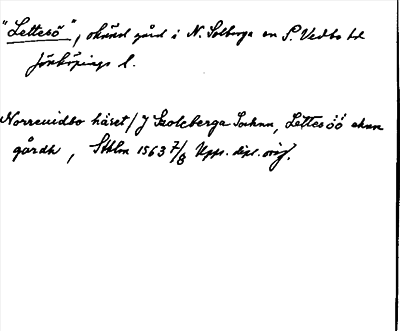 "Lettesö", okänd gård i N. Solberga sn S. Vedbo hd
Jönköpings l.
Norreuidbo häret / J Szolcberga Sochnn, Lettesöö een
gårdh, Sthlm 1563 7/8 Upps. dipl. orig.